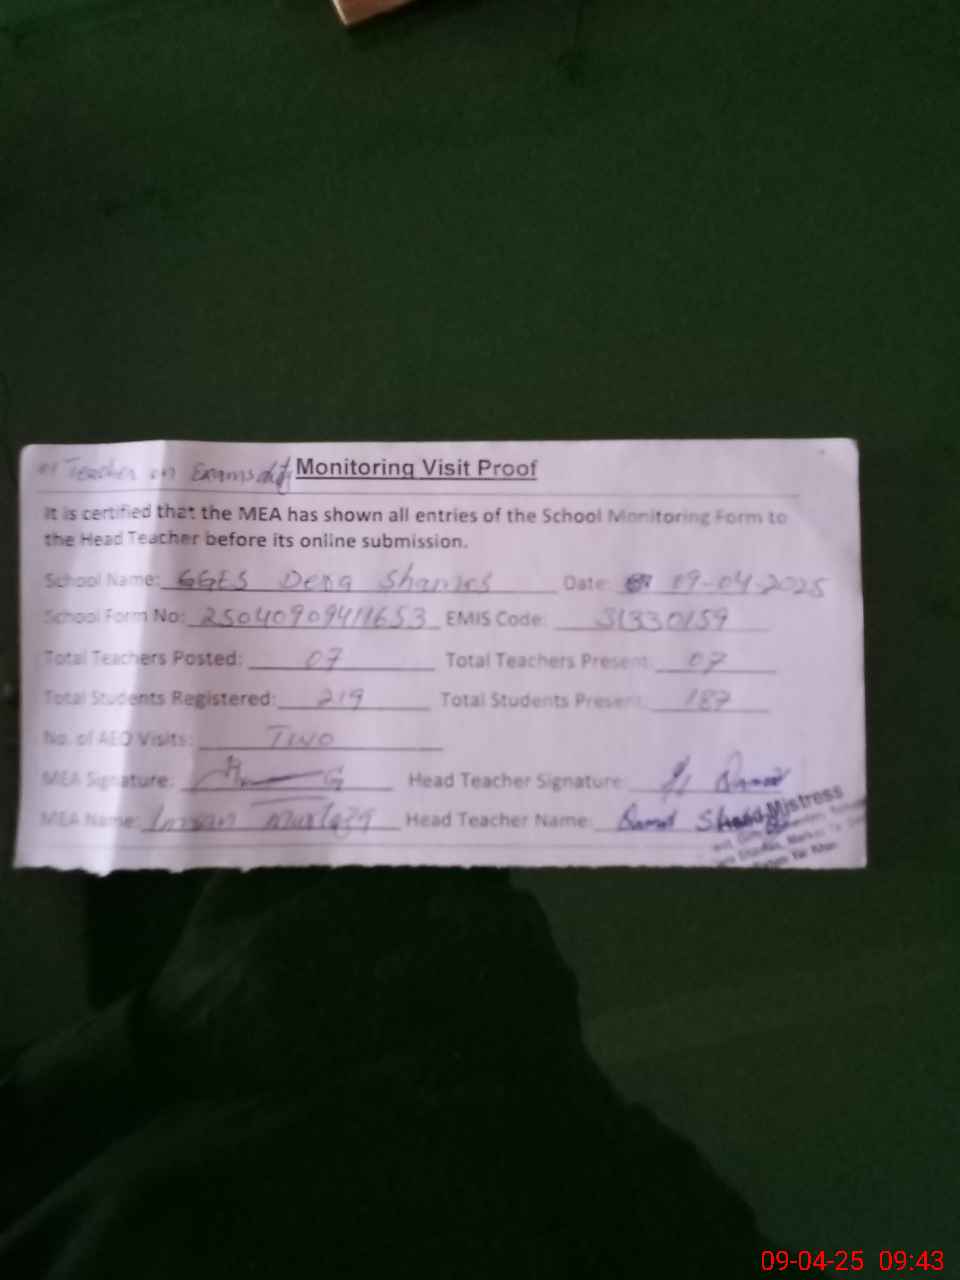 Teacher on Exams duty Monitoring Visit Proof
It is certified that the MEA has shown all entries of the School Monitoring Form to
the Head Teacher before its online submission.
School Name: GGES Dera Shams Date: 09-04-2025
School Form No: 25040909411653 EMIS Code: 31330159
Total Teachers Posted: 07 Total Teachers Present: 07
Total Students Registered: 219 Total Students Present: 187
No. of AEO Visits: TWO
MEA Signature: Head Teacher Signature:
MEA Name: Imran Head Teacher Name:
Head Mistress
09-04-25 09:43